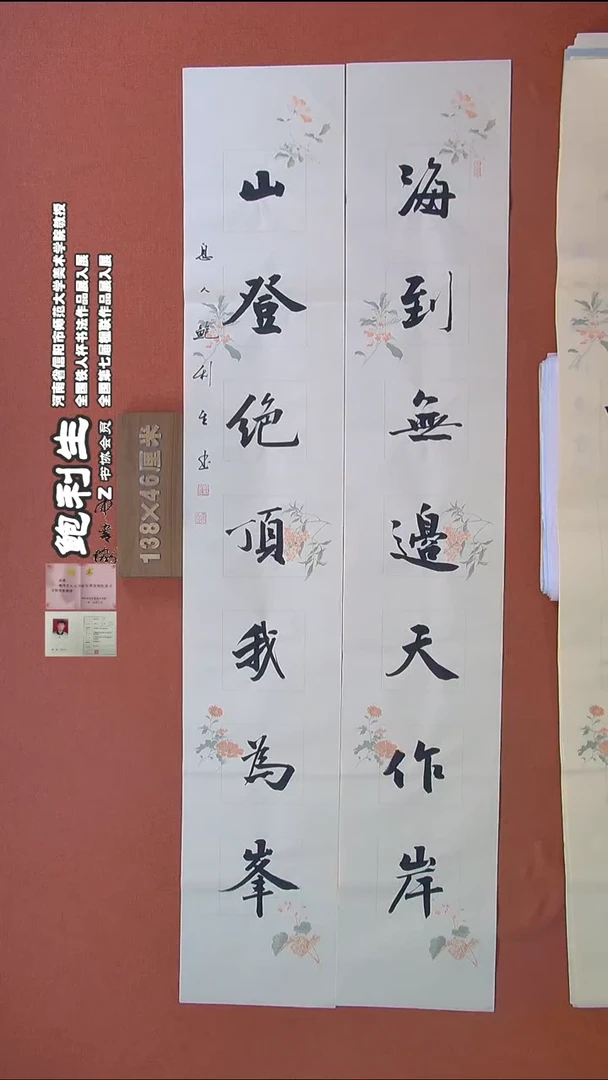 海到無邊天作岸
山登绝頂我為峯
息人鲍利生书
河南省信阳市师范大学美术学院教授
全国铁人杯书法作品展入展
全国第七届楹联作品展入展
鲍利生
书协会员
138×46厘米